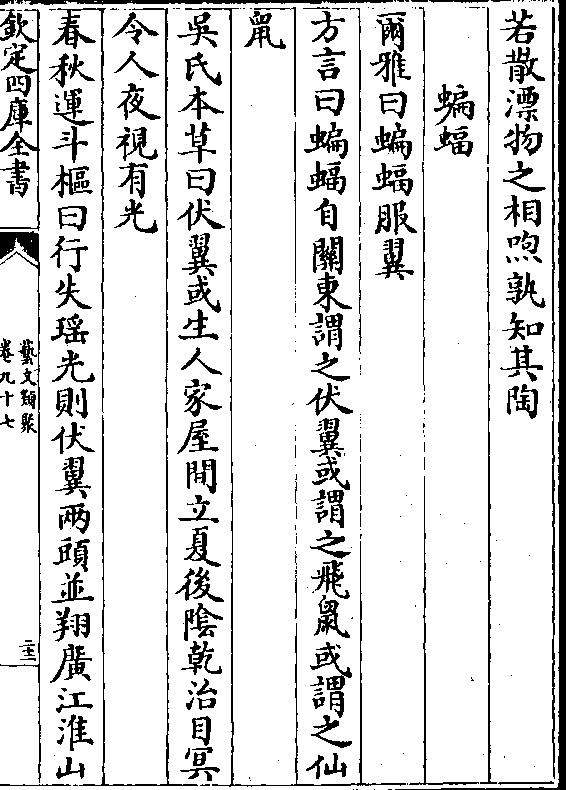 若散漂物之相喣孰知其陶
蝙蝠
爾雅曰蝙蝠服翼
方言曰蝙蝠自關東謂之伏翼或謂之飛鼠或謂之仙
鼠
吳氏本草曰伏翼或生人家屋間立夏後陰乾治目冥
令人夜視有光
春秋運斗樞曰行失瑶光則伏翼兩頭並翔廣江淮山
欽定四庫全書
藝文類聚
卷九十七